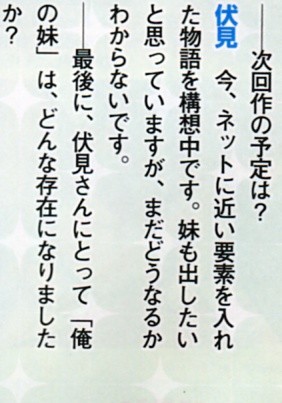 ――次回作の予定は？
伏見　今、ネットに近い要素を入れ
た物語を構想中です。妹も出したい
と思っていますが、まだどうなるか
わからないです。
――最後に、伏見さんにとって「俺
の妹」は、どんな存在になりました
か？